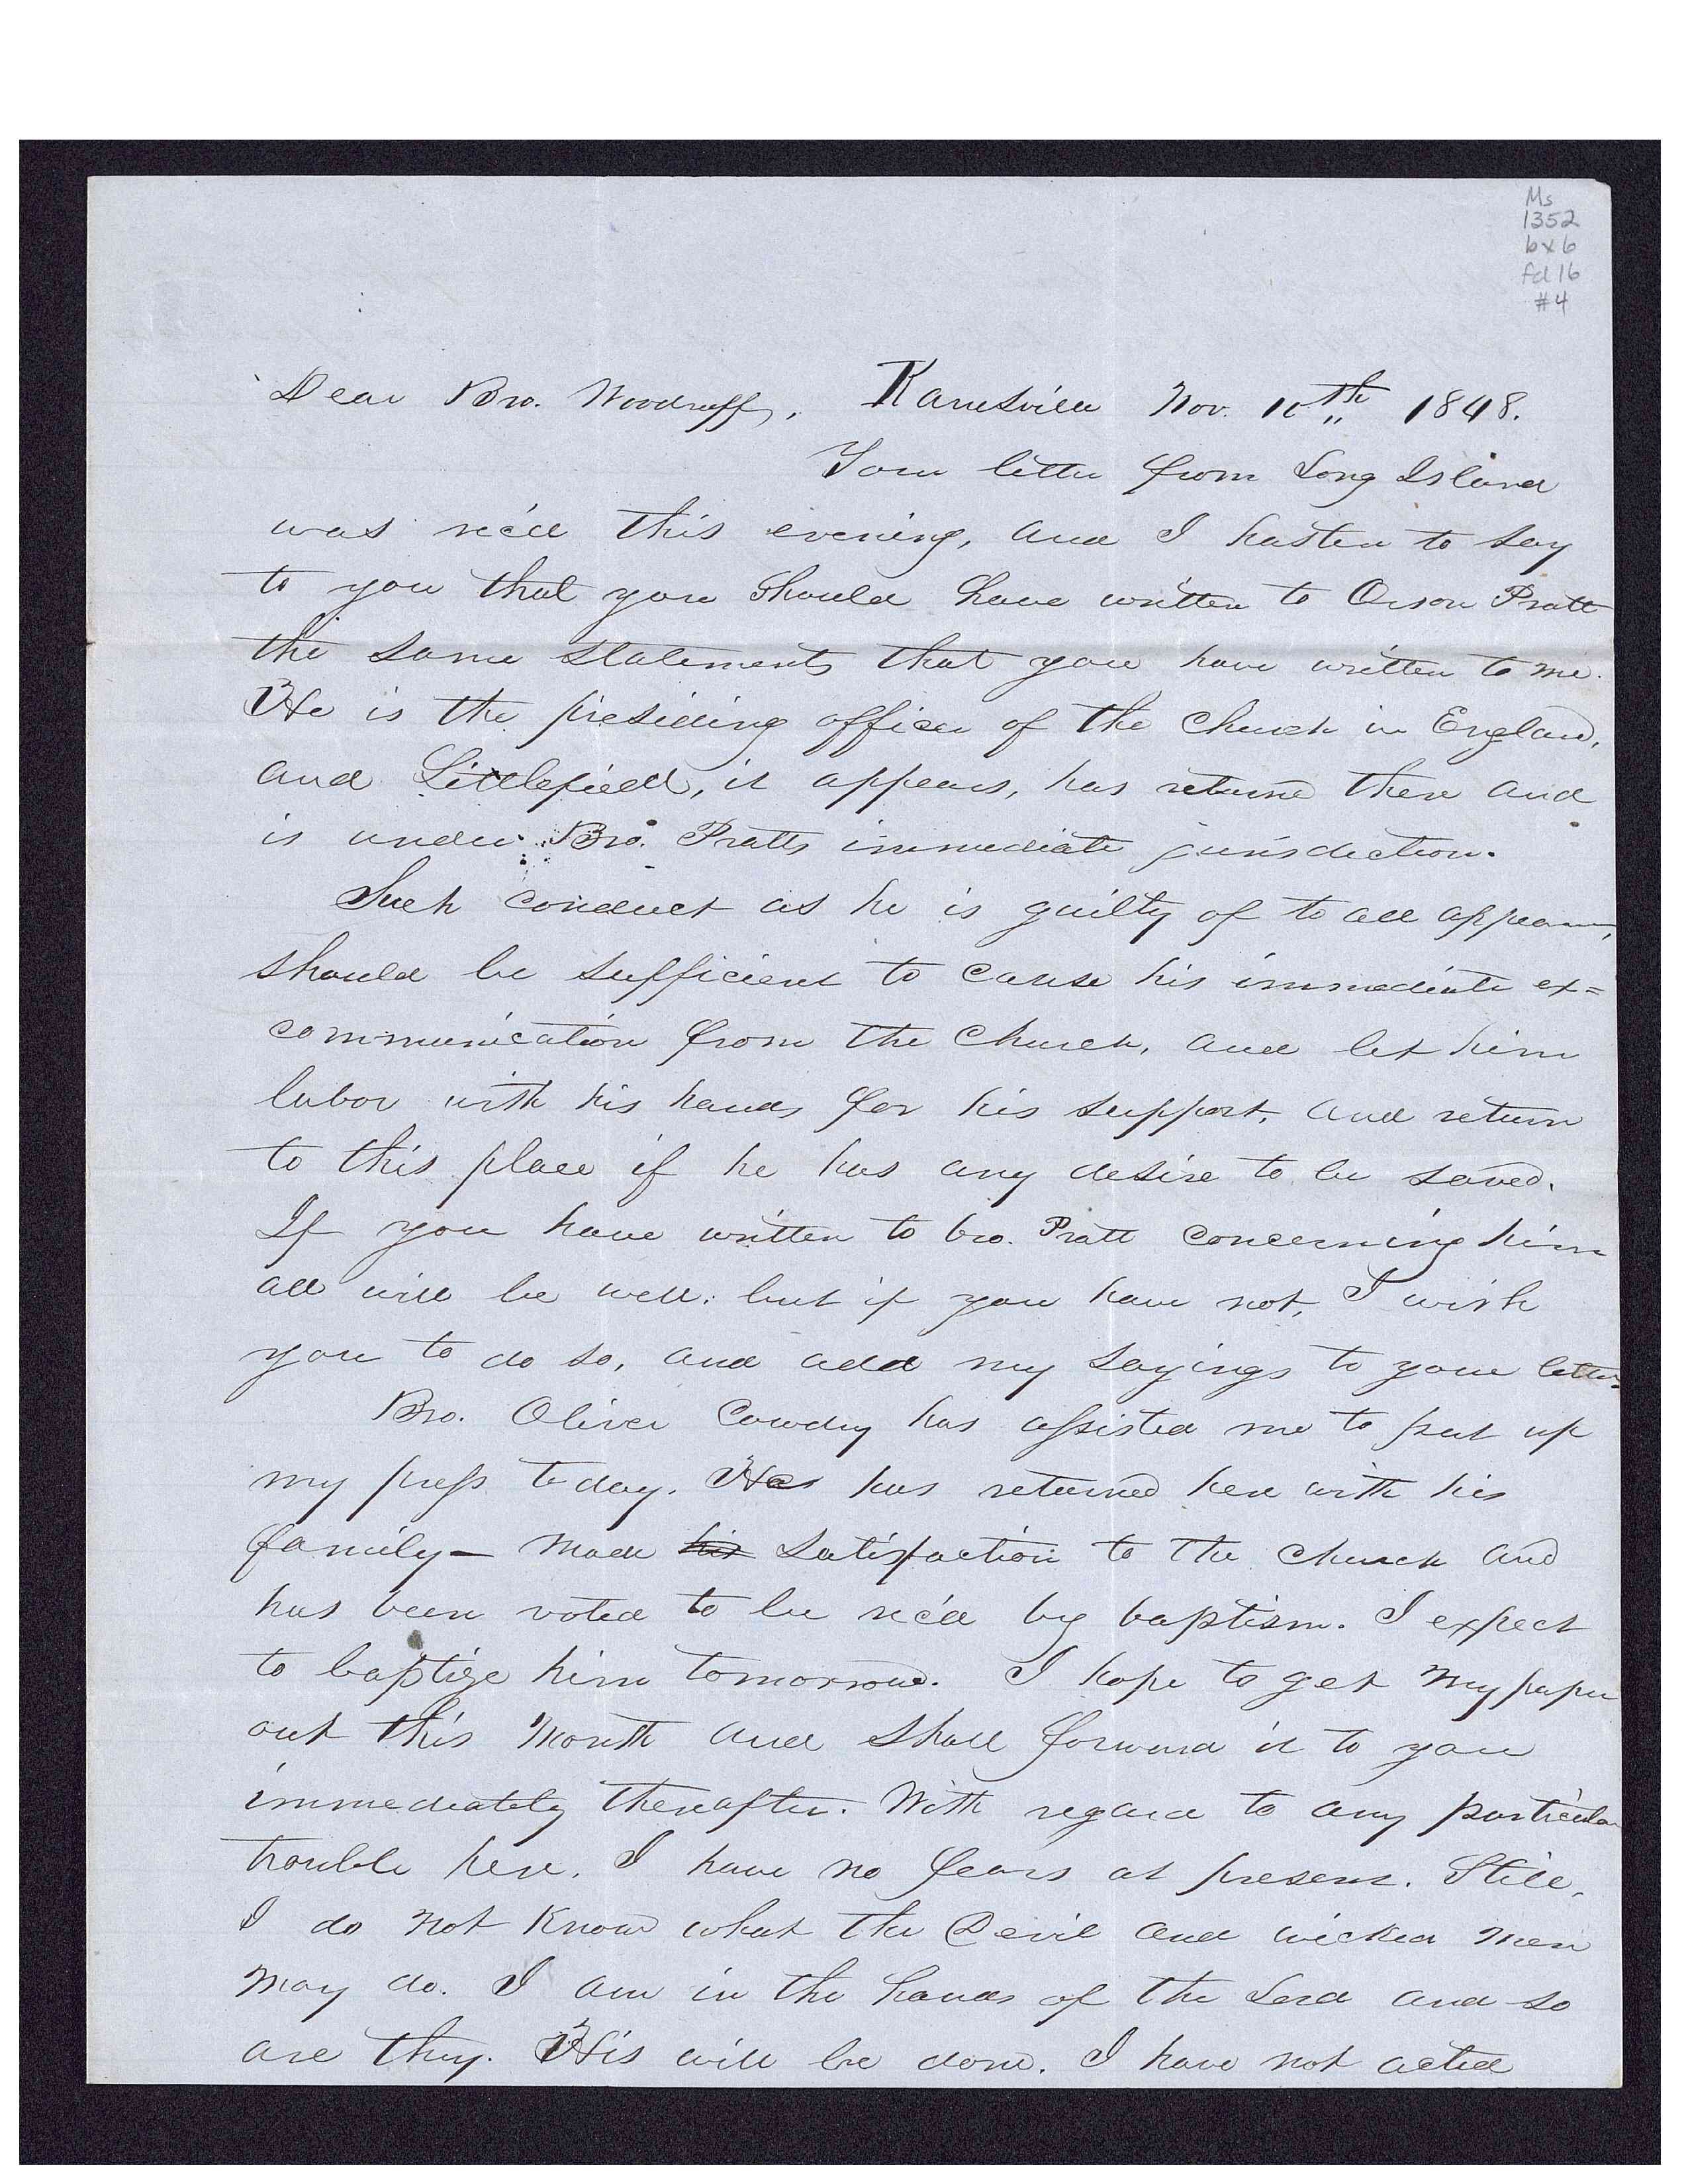 Ms
1352
bx 6
fd 16
#4
Dear Bro. Woodruff, Kanesville Nov. 10th 1848.
Your letter from Long Island
was rec'd this evening, and I hasten to say
to you that you should have written to Orson Pratt
the same statements that you have written to me.
He is the presiding officer of the church in England,
and Littlefield, it appears, has returned there and
is under Bro. Pratts immediate jurisdiction.
Such conduct as he is guilty of to all appearance,
should be sufficient to cause his immediate ex=
communication from the Church, and let him
labor with his hands for his support, and return
to this place if he has any desire to be saved.
If you have written to bro. Pratt concerning him
all will be well: but if you have not, I wish
you to do so, and add my sayings to your letter.
Bro. Oliver Cowdry has assisted me to put up
my press today. He has returned here with his
family — made his satisfaction to the church and
has been voted to be rec'd by baptism. I expect
to baptize him tomorrow. I hope to get my paper
out this Month and shall forward it to you
immediately thereafter. With regard to any particular
trouble here, I have no fears at present. Still,
I do not know what the Devil and wicked men
may do. I am in the hands of the Lord and so
are they. His will be done. I have not acted